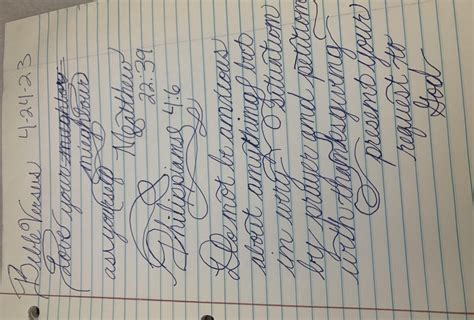 Bible Versus 4-24-23
Love your
neighbors
as yourself Matthew
22:39
Philippians 4:6
Do not be anxious
about anything but
in every situation
by prayer and petition
with thanksgiving
present your
request to
God